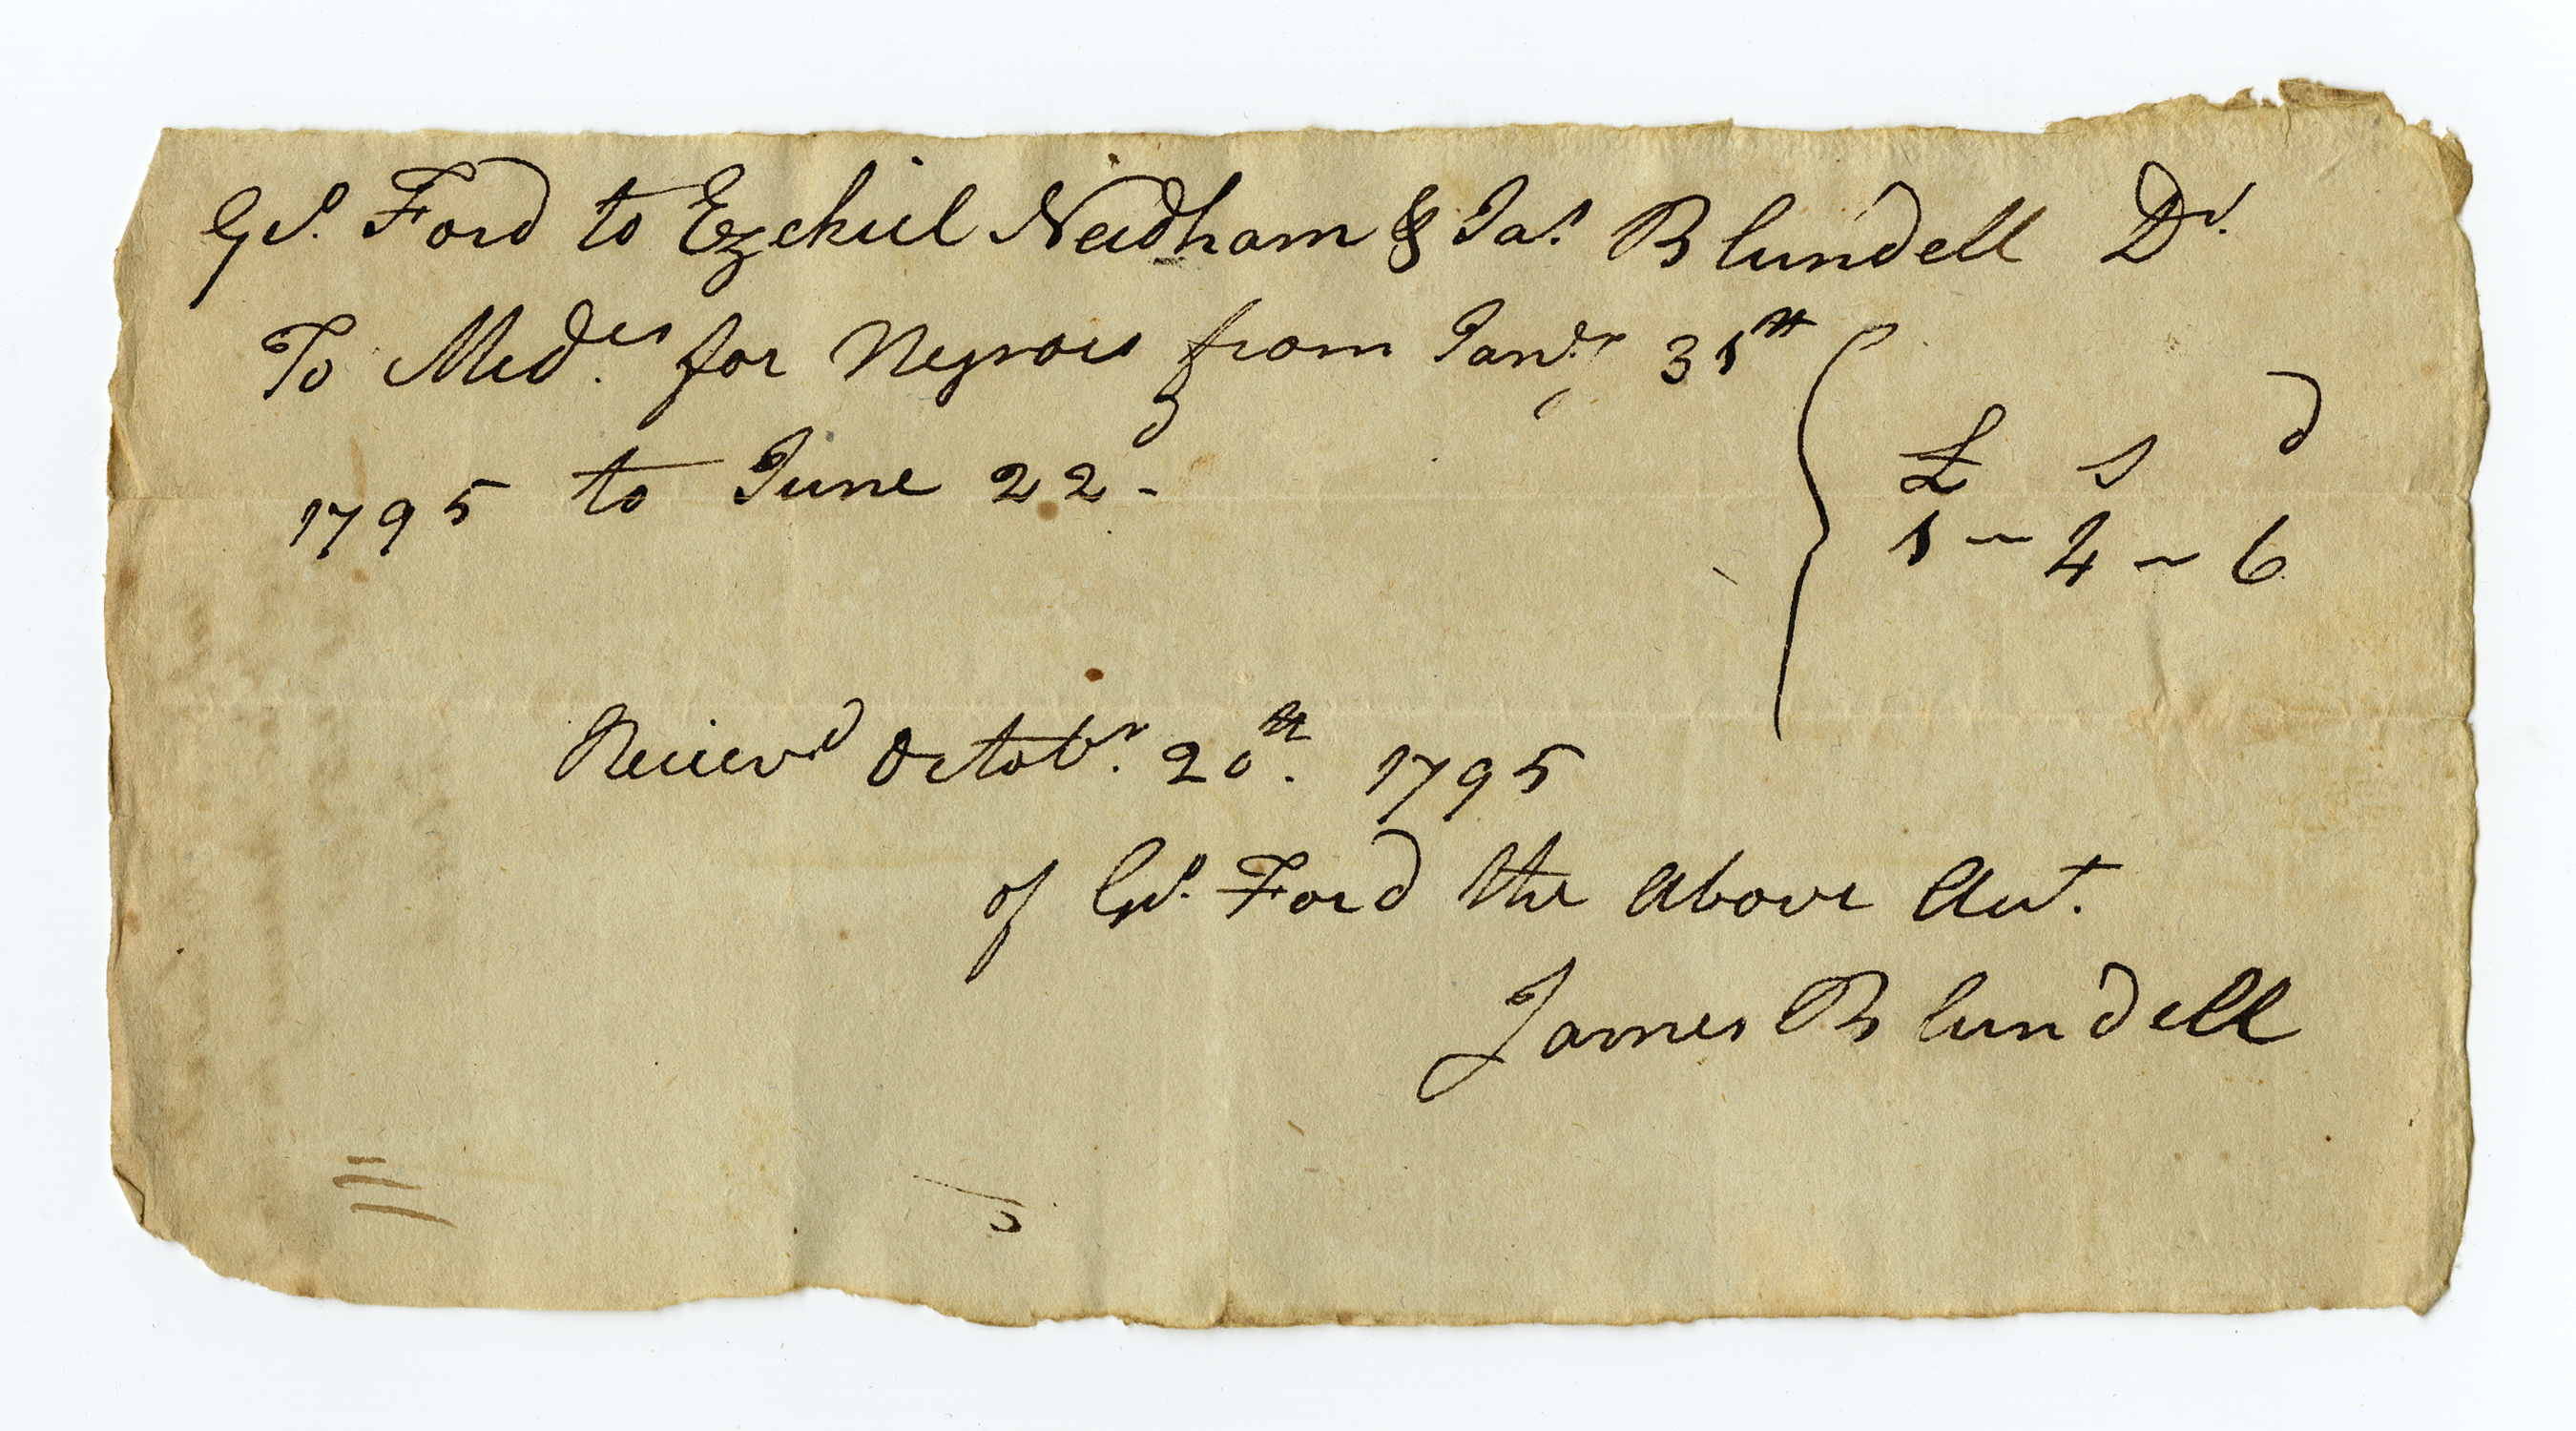 Gd. Ford to Ezekiel Needham & Jas. Blundell Dr.
To Medes. for Negroes from Jany. 31th
1795 to June 22 -
£ s d
1 - 4 - 6
Reciev'd Octobr. 20th. 1795
of Gd. Ford the above Act.
James Blundell